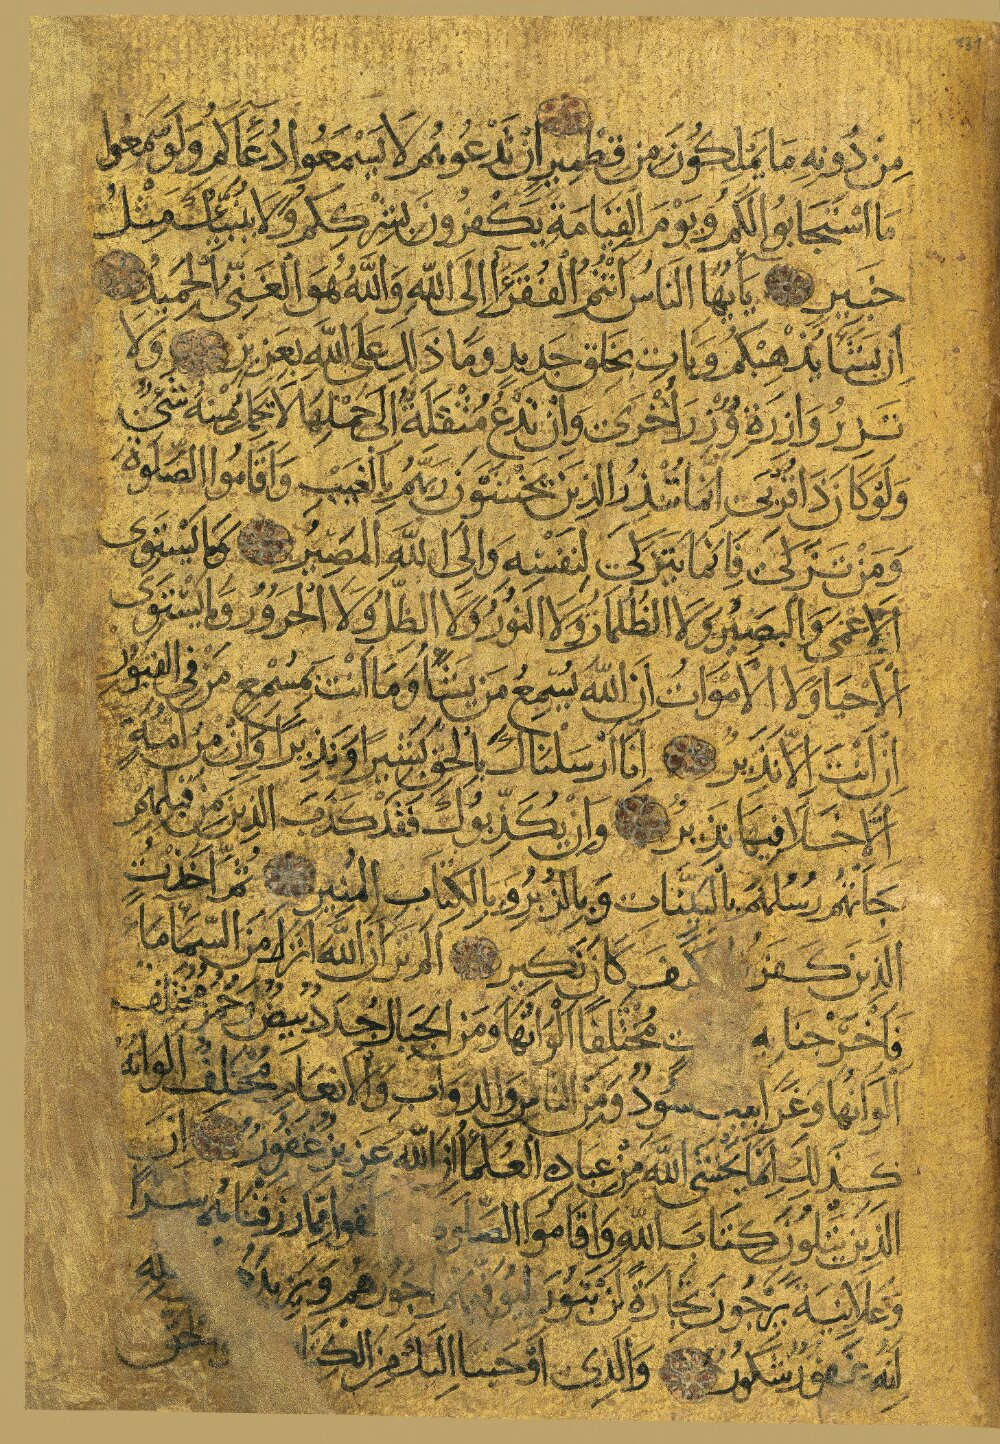 مِنْ دُونِهِ مَا يَمْلِكُونَ مِنْ قِطْمِيرٍ اِنْ تَدْعُوهُمْ لَا يَسْمَعُوا دُعَآءَكُمْ وَلَوْ سَمِعُوا
مَا اسْتَجَابُوا لَكُمْ وَيَوْمَ الْقِيَامَةِ يَكْفُرُونَ بِشِرْكِكُمْ وَلَا يُنَبِّئُكَ مِثْلُ
خَبِيرٍ يَآ اَيُّهَا النَّاسُ اَنْتُمُ الْفُقَرَآءُ اِلَى اللَّهِ وَاللَّهُ هُوَ الْغَنِيُّ الْحَمِيدُ
اِنْ يَشَأْ يُذْهِبْكُمْ وَيَأْتِ بِخَلْقٍ جَدِيدٍ وَمَا ذَلِكَ عَلَى اللَّهِ بِعَزِيزٍ وَلَا
تَزِرُ وَازِرَةٌ وِزْرَ اُخْرَى وَاِنْ تَدْعُ مُثْقَلَةٌ اِلَى حِمْلِهَا لَا يُحْمَلْ مِنْهُ شَيْءٌ
وَلَوْ كَانَ ذَا قُرْبَى اِنَّمَا تُنْذِرُ الَّذِينَ يَخْشَوْنَ رَبَّهُمْ بِالْغَيْبِ وَاَقَامُوا الصَّلَوةَ
وَمَنْ تَزَكَّى فَاِنَّمَا يَتَزَكَّى لِنَفْسِهِ وَاِلَى اللَّهِ الْمَصِيرُ وَمَا يَسْتَوِي
الْاَعْمَى وَالْبَصِيرُ وَلَا الظُّلُمَاتُ وَلَا النُّورُ وَلَا الظِّلُّ وَلَا الْحَرُورُ وَمَا يَسْتَوِي
الْاَحْيَآءُ وَلَا الْاَمْوَاتُ اِنَّ اللَّهَ يُسْمِعُ مَنْ يَشَآءُ وَمَا اَنْتَ بِمُسْمِعٍ مَنْ فِي الْقُبُورِ
اِنْ اَنْتَ اِلَّا نَذِيرٌ اِنَّا اَرْسَلْنَاكَ بِالْحَقِّ بَشِيرًا وَنَذِيرًا وَاِنْ مِنْ اُمَّةٍ
اِلَّا خَلَا فِيهَا نَذِيرٌ وَاِنْ يُكَذِّبُوكَ فَقَدْ كَذَّبَ الَّذِينَ مِنْ قَبْلِهِمْ
جَآءَتْهُمْ رُسُلُهُمْ بِالْبَيِّنَاتِ وَبِالزُّبُرِ وَبِالْكِتَابِ الْمُنِيرِ ثُمَّ اَخَذْتُ
الَّذِينَ كَفَرُوا فَكَيْفَ كَانَ نَكِيرِ اَلَمْ تَرَ اَنَّ اللَّهَ اَنْزَلَ مِنَ السَّمَآءِ مَآءً
فَاَخْرَجْنَا بِهِ مُخْتَلِفًا اَلْوَانُهَا وَمِنَ الْجِبَالِ جُدَدٌ بِيضٌ وَحُمْرٌ مُخْتَلِفٌ
اَلْوَانُهَا وَغَرَابِيبُ سُودٌ وَمِنَ النَّاسِ وَالدَّوَابِّ وَالْاَنْعَامِ مُخْتَلِفٌ اَلْوَانُهُ
كَذَلِكَ اِنَّمَا يَخْشَى اللَّهَ مِنْ عِبَادِهِ الْعُلَمَآءُ اِنَّ اللَّهَ عَزِيزٌ غَفُورٌ اِنَّ
الَّذِينَ يَتْلُونَ كِتَابَ اللَّهِ وَاَقَامُوا الصَّلَوةَ مِمَّا رَزَقْنَاهُمْ سِرًّا
وَعَلَانِيَةً يَرْجُونَ تِجَارَةً لَنْ تَبُورَ لِيُوَفِّيَهُمْ اُجُورَهُمْ وَيَزِيدَهُمْ
اِنَّهُ غَفُورٌ شَكُورٌ وَالَّذِي اَوْحَيْنَا اِلَيْكَ مِنَ الْكِتَابِ